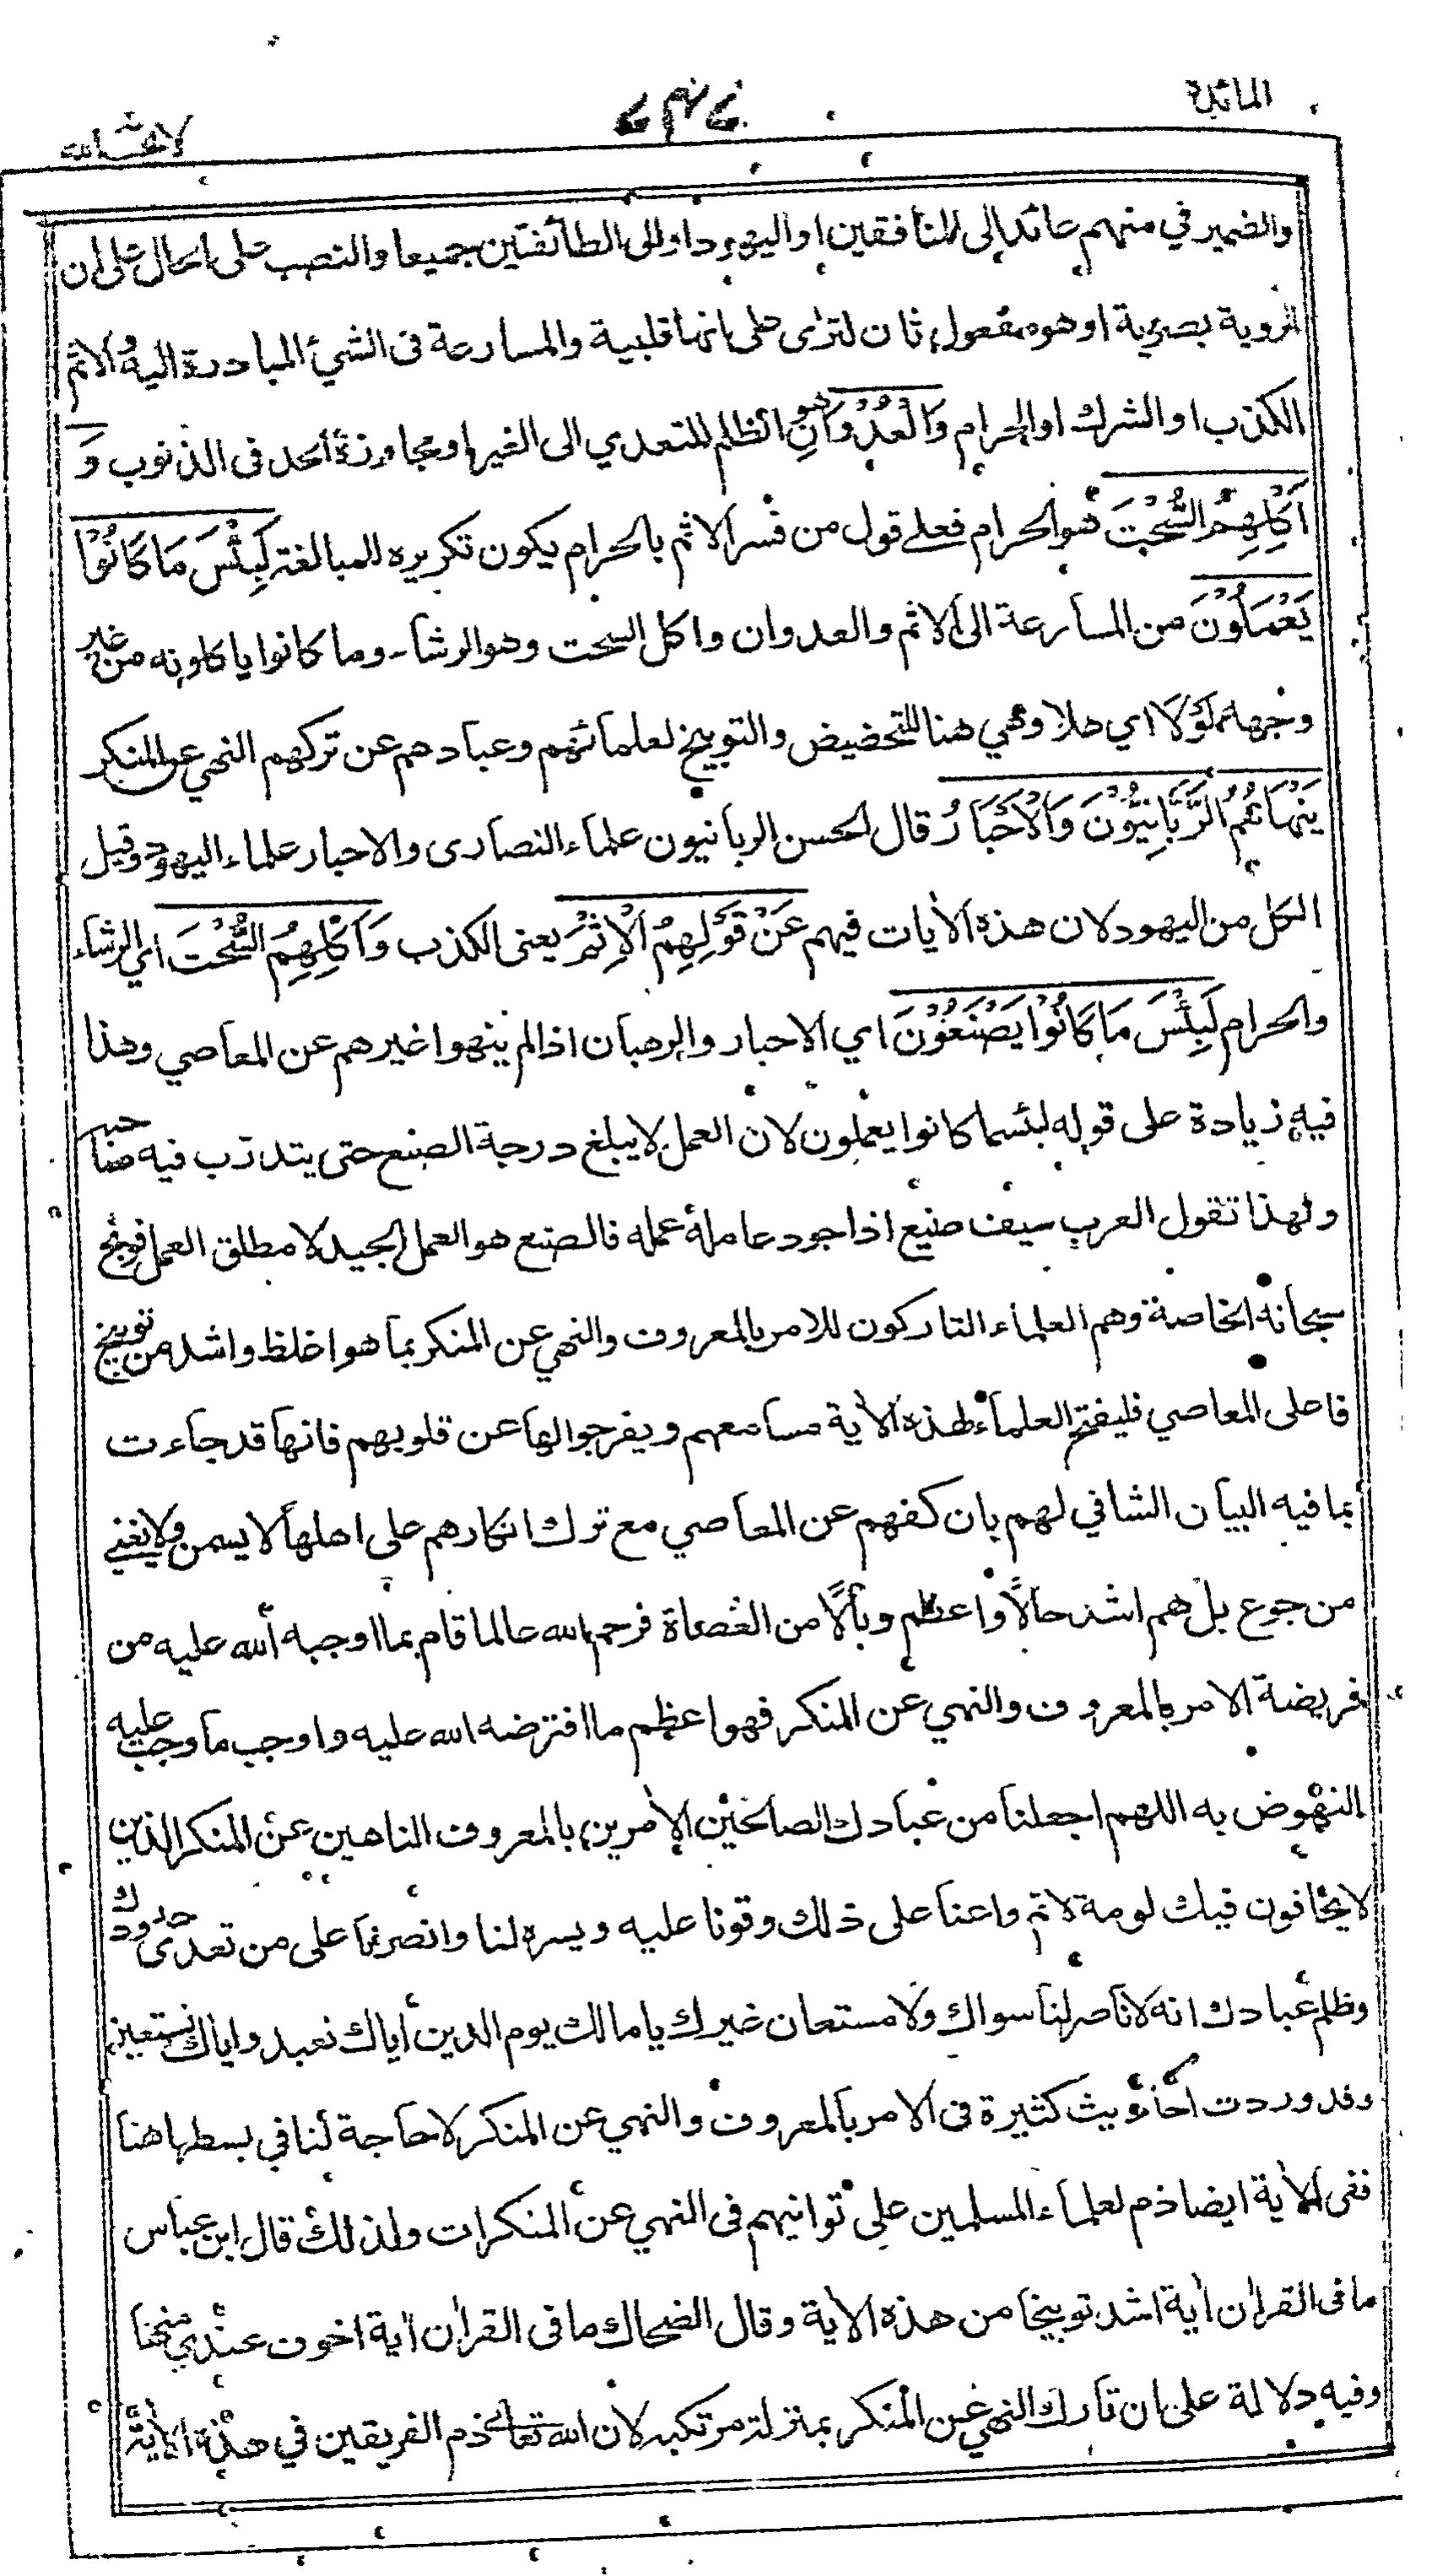 المائدة
لا يحب الله
والضمير في منهم عائد الى المنافقين او اليهود او الى الطائفتين جميعا والنصب على الحال على ان
الروية بصرية او هو مفعول ثان لترى على انها قلبية والمسارعة فى الشيء المبادرة اليه والاثم
الكذب او الشرك او الحرام وَالْعُدْوَانِ هو الظلم المتعدي الى الغير او مجاوزة الحد فى الذنوب وَ
اَكْلِهِمُ السُّحْتَ هو الحرام فعلى قول من فسر الاثم بالحرام يكون تكريره للمبالغة لَبِئْسَ مَا كَانُوْا
يَعْمَلُوْنَ من المسارعة الى الاثم والعدوان واكل السحت وهو الرشا ـ وما كانوا ياكلونه من غير
وجهه لَوْلَا اي هلا وهي هنا للتحضيض والتوبيخ لعلمائهم وعبادهم عن تركهم النهي عن المنكر
يَنْهَاهُمُ الرَّبَّانِيُّوْنَ وَالْاَحْبَارُ قال الحسن الربانيون علماء النصارى والاحبار علماء اليهود وقيل
الكل من اليهود لان هذه الاٰيات فيهم عَنْ قَوْلِهِمُ الْاِثْمَ يعنى الكذب وَاَكْلِهِمُ السُّحْتَ اي الرشاء
والحرام لَبِئْسَ مَا كَانُوْا يَصْنَعُوْنَ اي الاحبار والرهبان اذا لم ينهوا غيرهم عن المعاصي وهذا
فيه زيادة على قوله لبئسما كانوا يعملون لان العمل لا يبلغ درجة الصنع حتى يتدرب فيه صاحبه
ولهذا تقول العرب سيف صنيع اذا جود عامله عمله فالصنع هو العمل الجيد لا مطلق العمل فوبخ
سبحانه الخاصة وهم العلماء التاركون للامر بالمعروف والنهي عن المنكر بما هو اغلظ واشد من توبيخ
فاعلى المعاصي فليفتح العلماء لهذه الاٰية مسامعهم ويفرجوا لها عن قلوبهم فانها قد جاءت
بما فيه البيان الشافي لهم بان كفهم عن المعاصي مع ترك انكارهم على اهلها لا يسمن ولا يغني
من جوع بل هم اشد حالًا واعظم وبالًا من العُصاة فرحم الله عالما قام بما اوجبه الله عليه من
فريضة الامر بالمعروف والنهي عن المنكر فهو اعظم ما افترضه الله عليه واوجب ما وجب عليه
النهوض به اللهم اجعلنا من عبادك الصالحين الاٰمرين بالمعروف الناهين عن المنكر الذين
لا يخافون فيك لومة لائم واعنا على ذلك وقونا عليه ويسره لنا وانصرنا على من تعدى حدودك
وظلم عبادك انه لا ناصر لنا سواك ولا مستعان غيرك يا مالك يوم الدين اياك نعبد واياك نستعين
وقد وردت احاديث كثيرة فى الامر بالمعروف والنهي عن المنكر لا حاجة لنا في بسطها هنا
ففى الاٰية ايضا ذم لعلماء المسلمين على توانيهم فى النهي عن المنكرات ولذلك قال ابن عباس
ما فى القراٰن اٰية اشد توبيخا من هذه الاٰية وقال الضحاك ما فى القراٰن اٰية اخوف عندي منها
وفيه دلالة على ان تارك النهي عن المنكر بمنزلة مرتكبه لان الله تعالى ذم الفريقين في هذه الاٰية